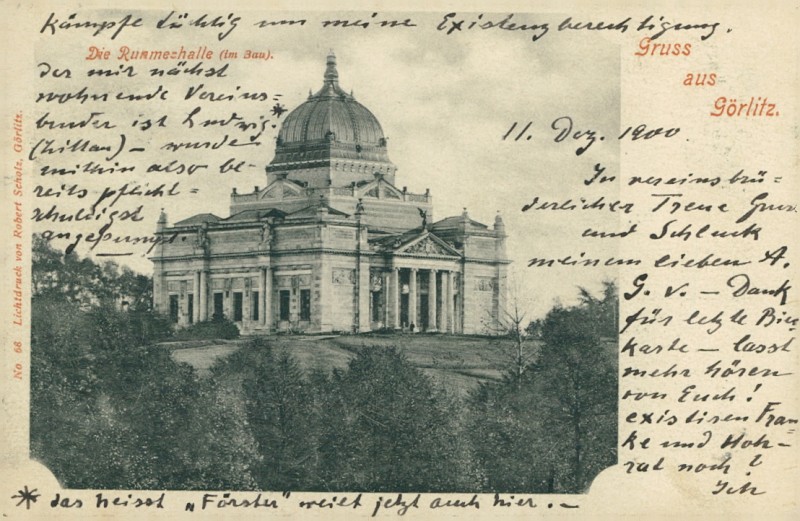 Gruss
aus
Görlitz.
Die Ruhmeshalle (im Bau).
No 66 Lichtdruck von Robert Scholz, Görlitz.
11. Dez. 1900
In vereinsbrü-
derlicher Treue Gruss
und Schluck
meinem lieben A.
G. V. — Dank
für letzte Bier
karte — lasst
mehr hören
von Euch!
existiren Fran-
ke und Hoh-
rat noch?
Ich
Kämpfe tüchtig um meine Existenzberechtigung.
der mir nächst
wohnende Vereins-
bruder ist Ludwig *
(Zittau) — wurde
mithin also be-
reits pflicht-
schuldigst
angepumpt. —
* das heisst „Förster“ weilt jetzt auch hier. —